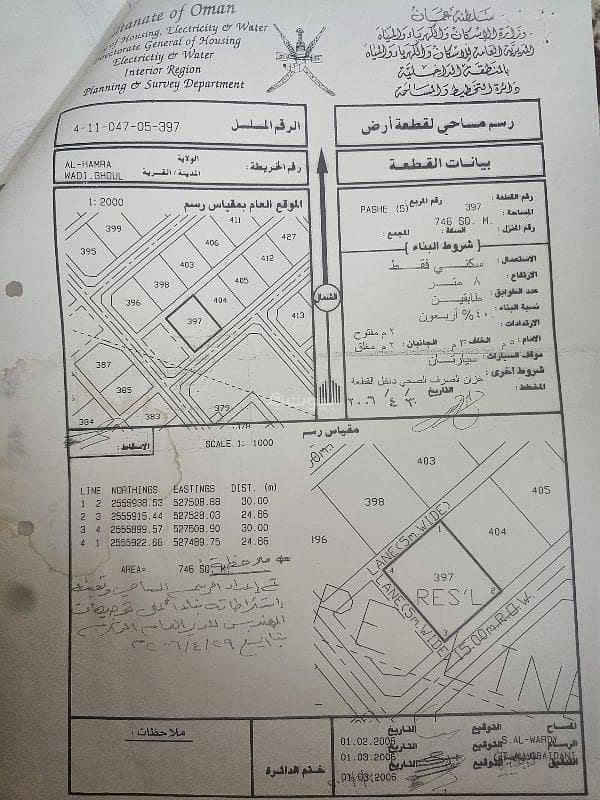 Sultanate of Oman
of Housing, Electricity & Water
Directorate General of Housing
Electricity & Water
Interior Region
Planning & Survey Department
سلطنة عُمان
وزارة الإسكان والكهرباء والمياه
المديرية العامة للإسكان والكهرباء والمياه
بالمنطقة الداخلية
دائرة التخطيط والمساحة
4-11-047-05-397
الرقم المسلسل
رسم مساحي لقطعة أرض
AL-HAMRA
WADI.GHOUL
الولاية
المدينة / القرية
رقم الخريطة:
بيانات القطعة
1: 2000
الموقع العام بمقياس رسم
رقم القطعة : 397
رقم المربع PASHE (5)
المساحة : 746 SQ. M.
رقم المنزل :
السكة :
المجمع :
شروط البناء
الاستعمال : سكني فقط
الارتفاع : ٨ متر
عدد الطوابق : طابقين
نسبة البناء : ٤٠% أربعون
الارتدادات :
الامام : ٥ م
الخلف ٣ م
الجانبان
٣ م مفتوح
٢ م مغلق
موقف السيارات : سيارتان
شروط اخرى : خزن الصرف الصحي داخل القطعة
المخطط :
التاريخ
٢٠٠٦/٤/٣٠
الشمال
411
399
406
427
395
403
412
398
405
396
404
397
413
387
385
384
383
379
الاسقاط:
SCALE 1: 1000
مقياس رسم
LINE NORTHINGS EASTINGS DIST. (m)
1 2 2555938.53 527508.88 30.00
2 3 2555915.44 527528.03 24.86
3 4 2555899.57 527508.90 30.00
4 1 2555922.66 527489.75 24.86
AREA= 746 SQ. M.
ملاحظة
403
405
398
404
396
LANE(5m.WIDE)
397
RES'L
LANE(5m.WIDE)
15.00m.R.O.W.
1
2
3
4
ملاحظات :
ختم الدائرة
المساح
التوقيع
التاريخ
S.AL-WARDY
01.02.2006
الرسام
التوقيع
التاريخ
01.03.2006
التدقيق
التوقيع
التاريخ
01.03.2006